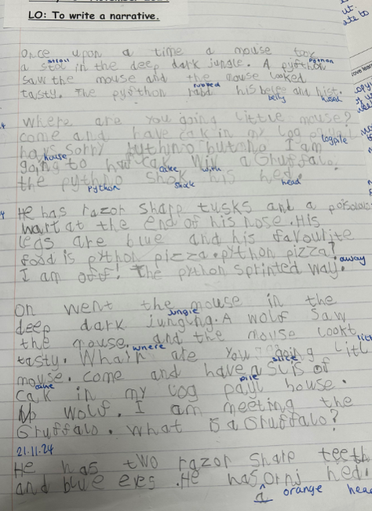 LO: To write a narrative.
Once upon a time a mouse took
a stol in the deep dark jungle. A pyython
stroll python
saw the mouse and the mouse looked
rubbed
tasty. The pyython rabd his belee and hist.
belly hissed
Where are you going little mouse?
come and have cak in my log
logpile
house
hav sorry pythno but no I am
going to hav cak wiv a Gruffalo.
cake with
the pythno shok his hed.
Python shook head
He has razor sharp tusks and a poisonous
wart at the end of his nose. His
leas are blue and his favourite
food is python pizza. python pizza?
I am off! The python sprinted way.
away
On went the mouse in the
jungle
deep dark junging. A wolf saw
the mouse. and the mouse lookt
where
tasty. Whair are you going litl
slice
mouse. come and have a slis of
cake
cak in my log payl house.
pile
No wolf. I am meeting the
Gruffalo. What is a Gruffalo?
21.11.24
He has two razor sharp teeth
and blue eyes. He has orni hed.
orange head